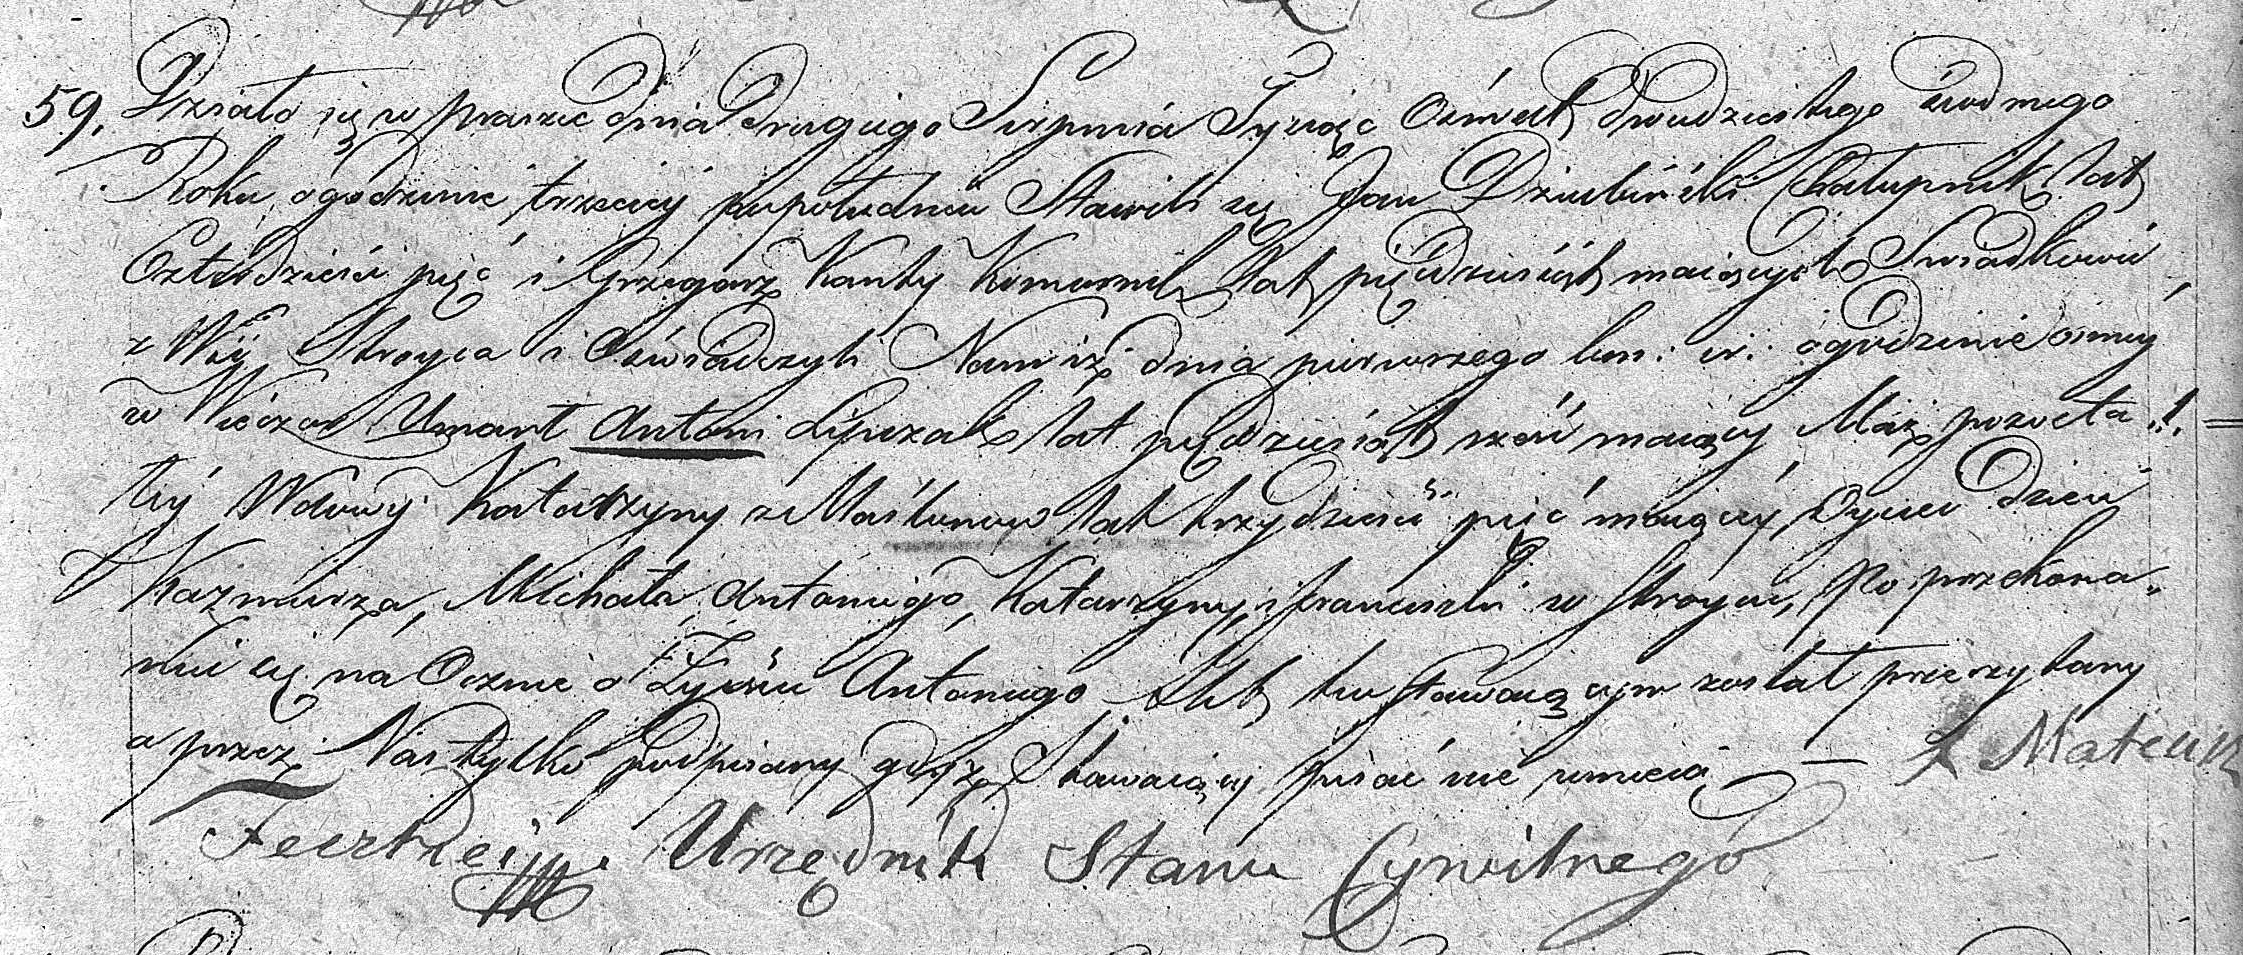 59. Działo się w praszce dnia drugiego Sierpnia Tysiąc Ośmset dwudziestego siódmego
Roku, o godzinie trzeciey popołudniu Stawili się Jan Dziubiński Chałupnik, lat
Czterdzieści pięć i Grzegorz Kanty Komornik lat pięćdziesiąt maiących Swiadkowie,
z Wsi Stroyca i Oświadczyli Nam iż dnia pierwszego b.m: i r: o godzinie osmey
w Wieczor Umarł Antoni Lipczak lat pięćdziesiąt sześć maiący, Mąż pozosta„
łey Wdowy Katarzyny z Maślunow lat trzydzieści pięć maiącey, Oyciec dzieci
Kaźmierza, Michała, Antoniego, Katarzyny, i franciszki w Stroycu, Po przekona„
niu się na Ocznie o Zyściu Antoniego Akt tu stawaiącym został przeczytany
a przez Nas tylko podpisany gdyż Stawaiący pisać nie umieią — X Mateusz
Feczkiei Urzędnik Stanu Cywilnego